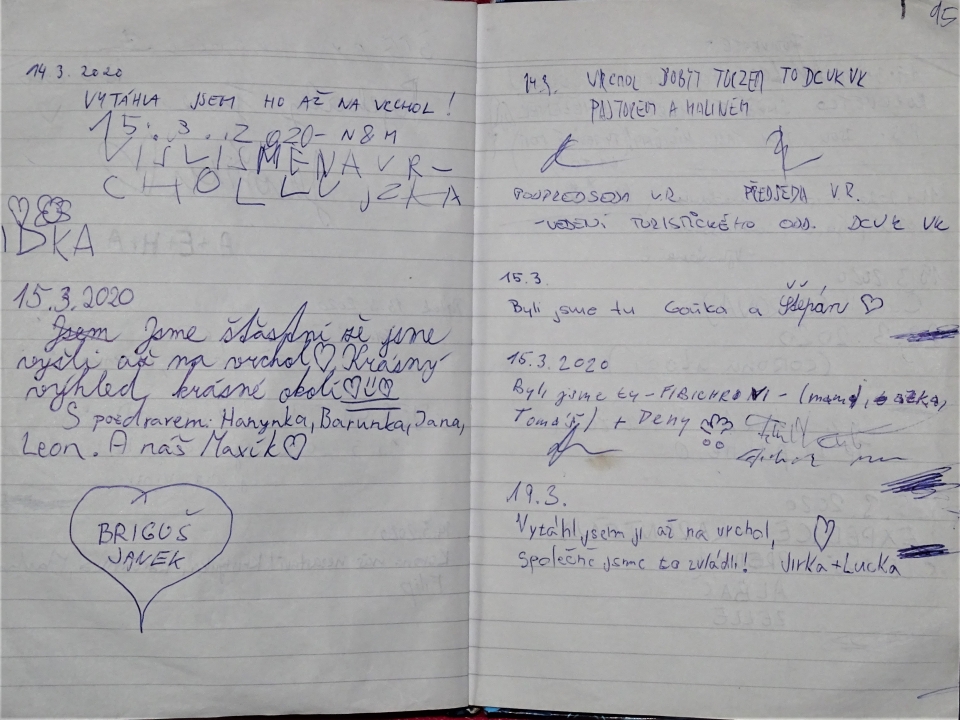 14 3. 2020
VYTÁHLA JSEM HO AŽ NA VRCHOL!
15. 3. 2020 -
VR-
CHOLLU
IDKA
15.3.2020
Jsem Jsme šťastní že jsme
vyšli až na vrchol♡ Krásný
výhled, krásné okolí♡!!♡
S pozdravem: Hanynka, Barunka, Jana,
Leon. A náš Maxík♡
BRIGUŠ
JANEK
95
14.3. VRCHOL DOBYT TO DCUK VK
A HALINEM
PODPŘEDSEDA V.R. PŘEDSEDA V R.
-VEDENÍ TURISTICKÉHO ODD. DCUK VK
15.3.
Byli jsme tu a Štěpán ♡
15.3.2020
Byli jsme ty - FIBICHROVI - (mama,
Tomáš) + Deny
19.3.
Vytáhl jsem ji až na vrchol, ♡
Společně jsme to zvládli! Jirka+Lucka